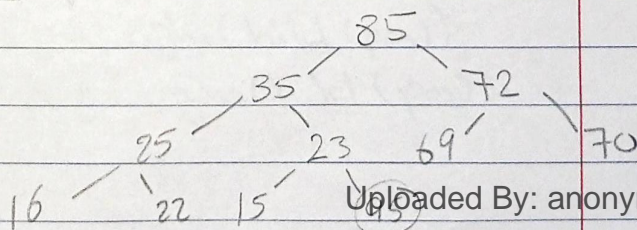 85
35 72
25 23 69 70
16 22 15
Uploaded By: anony